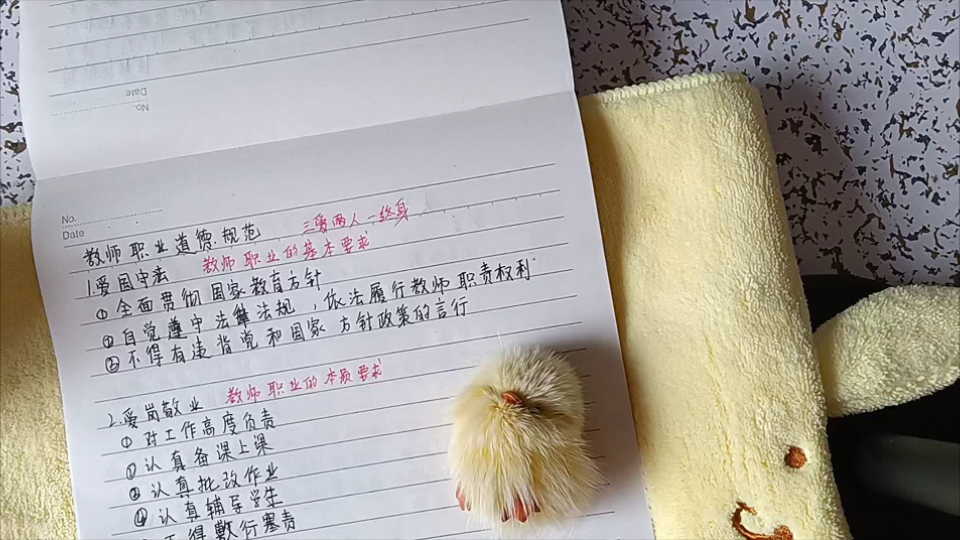 Date
No.
No.
Date
教师职业道德规范 三爱两人一终身
1.爱国守法 教师职业的基本要求
①全面贯彻国家教育方针
②自觉遵守法律法规，依法履行教师职责权利
③不得有违背党和国家方针政策的言行
2.爱岗敬业 教师职业的本质要求
①对工作高度负责
②认真备课上课
③认真批改作业
④认真辅导学生
不得敷衍塞责